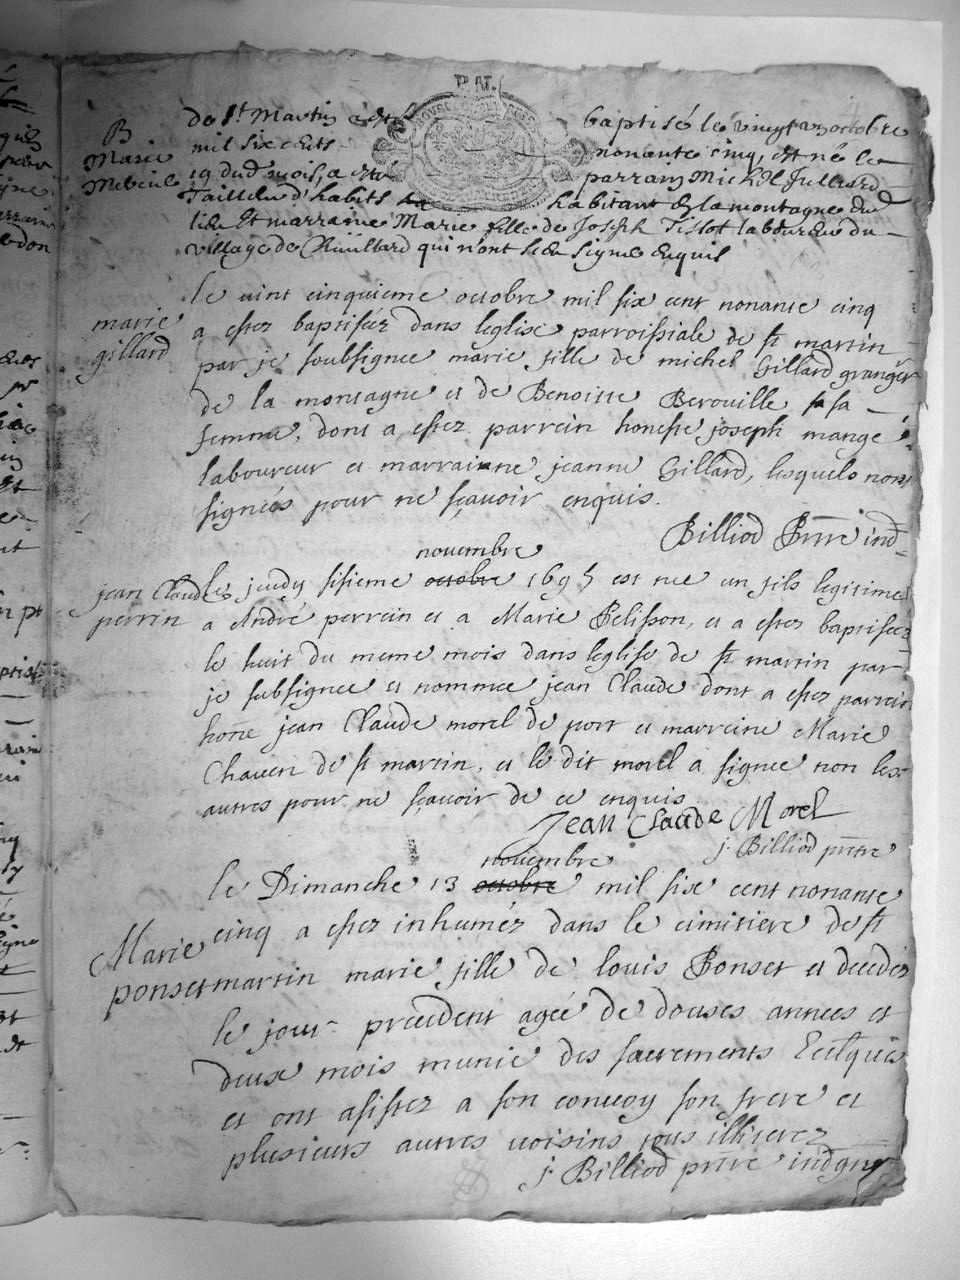 P. N.
de St Martin a esté baptisé le vingt un octobre
B
Marie
mil six cents nonante cinq, est né le
19 dud mois, a esté parrain Michel Julliard
Tailleur d'habits habitant de la montagne dud
lieu Et marraine Marie fille de Joseph Tissot laboureur du
village de qui n'ont sceu signé Enquis
le vint cinquieme octobre mil six cent nonante cinq
marie
gillard
a estez baptiséz dans leglise parroissiale de st martin
par je soubsignee marie fille de michel Gillard granger
de la montagne et de Benoitte Berouille sa
femme, dont a estez parrein honeste joseph mange
laboureur et marrainne jeanne Gillard, lesquels nont
signés pour ne sçavoir enquis.
Billiod Prtre ind
novembre
jean Claude
perrin
le jeudy sisieme octobre 1695 est nee un fils legitime
a André perrein et a Marie Pelisson, et a estez baptiseez
le huit du meme mois dans leglise de st martin par
je subsignee et nommee jean Claude dont a estez parrein
hone jean Claude morel de port et marreine Marie
Chaven de st martin, et le dit morel a signee non les
autres pour ne sçavoir de ce enquis
Jean Claude Morel
j. Billiod prtre
novembre
le Dimanche 13 octobre mil six cent nonante
Marie
ponset
cinq a estez inhuméz dans le cimitiere de st
martin marie fille de louis Ponset et decedez
le jour precedent agée de douses annees et
deux mois munie des sacrements
et ont asistez a son convoy son frere et
plusieurs autres voisins tous illiterez
j. Billiod prtre indgne